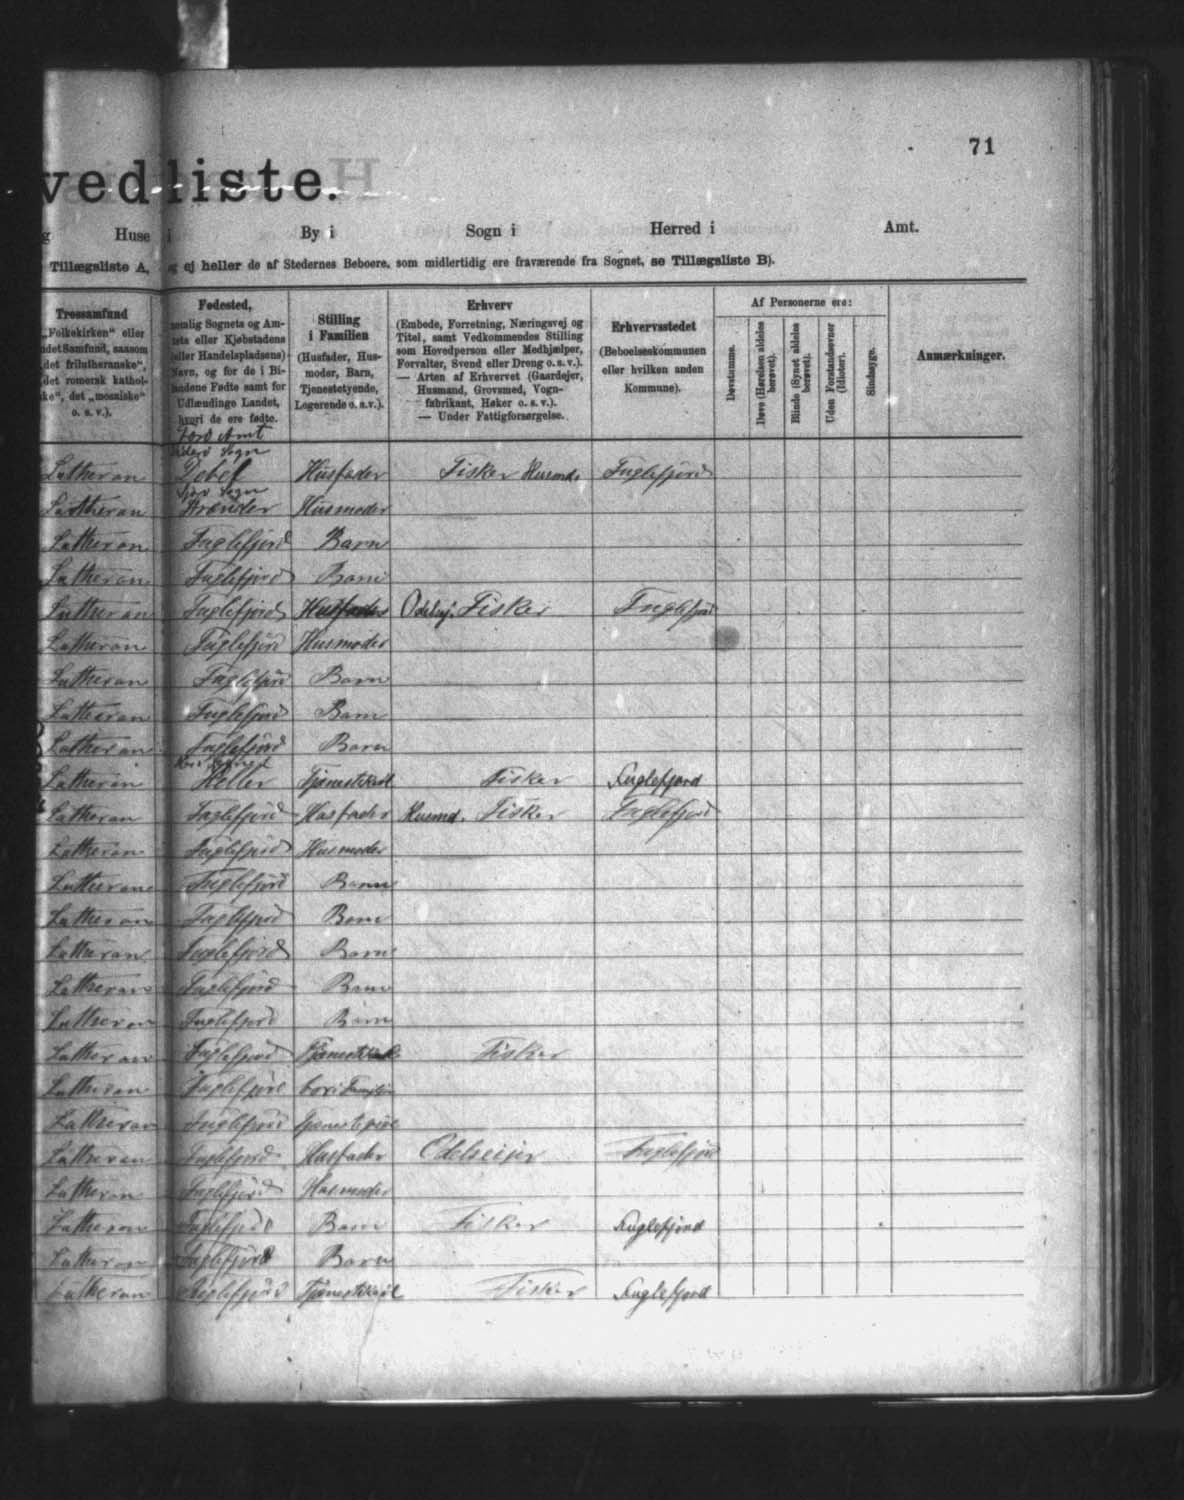 71
vedliste.
g Huse i By i Sogn i Herred i Amt.
Tillægsliste A, og ej heller de af Stedernes Beboere, som midlertidig ere fraværende fra Sognet, se Tillægsliste B).
Trossamfund
„Folkekirken“ eller
ndet Samfund, saasom
det frilutheranske“,
det romersk kathol-
ke“, det „mosaiske“
o. s. v.).
Fødested,
nemlig Sognets og Am-
tets eller Kjøbstadens
(eller Handelspladsens)
Navn, og for de i Bi-
landene Fødte samt for
Udlændinge Landet,
hvori de ere fødte.
Stilling
i Familien
(Husfader, Hus-
moder, Barn,
Tjenestetyende,
Logerende o. s. v.).
Erhverv
(Embede, Forretning, Næringsvej og
Titel, samt Vedkommendes Stilling
som Hovedperson eller Medhjælper,
Forvalter, Svend eller Dreng o. s. v.).
— Arten af Erhvervet (Gaardejer,
Husmand, Grovsmed, Vogn-
fabrikant, Høker o. s. v.).
— Under Fattigforsørgelse.
Erhvervsstedet
(Beboelseskommunen
eller hvilken anden
Kommune).
Af Personerne ere:
Døvstumme.
Døve (Hørelsen aldeles
berøvet).
Blinde (Synet aldeles
berøvet).
Uden Forstandsevner
(Idioter).
Sindssyge.
Anmærkninger.
Amt
Sogn
Lutheran Husfader Fisker Husmd. Fuglefjord
Sogn
Lutheran Strænder Husmoder
Lutheran Fuglefjord Barn
Lutheran Fuglefjord Barn
Lutheran Fuglefjord Husfader Odelsej. Fisker Fuglefjord
Lutheran Fuglefjord Husmoder
Lutheran Fuglefjord Barn
Lutheran Fuglefjord Barn
Lutheran Fuglefjord Barn
Lutheran Heller Tjenestekarl Fisker Fuglefjord
Lutheran Fuglefjord Husfader Husmd. Fisker Fuglefjord
Lutheran Fuglefjord Husmoder
Lutheran Fuglefjord Barn
Lutheran Fuglefjord Barn
Lutheran Fuglefjord Barn
Lutheran Fuglefjord Barn
Lutheran Fuglefjord Barn
Lutheran Fuglefjord Tjenestekarl Fisker
Lutheran Fuglefjord
Lutheran Fuglefjord Tjenestepige
Lutheran Fuglefjord Husfader Odelseijer Fuglefjord
Lutheran Fuglefjord Husmoder
Lutheran Fuglefjord Barn Fisker Fuglefjord
Lutheran Fuglefjord Barn
Lutheran Fuglefjord Tjenestekarl Fisker Fuglefjord